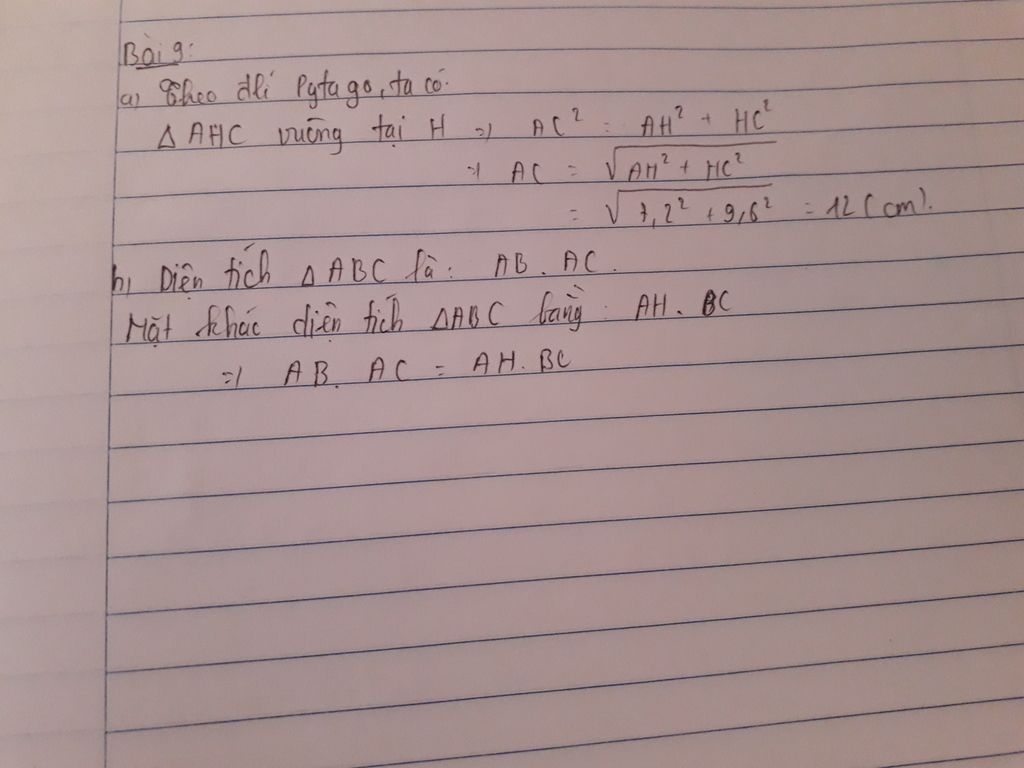 Bài 9:
a) Theo đlí Pytago, ta có:
Δ AHC vuông tại H => AC² = AH² + HC²
=> AC = √AH² + HC²
= √7,2² + 9,6² = 12 (cm).
b) Diện tích Δ ABC là: AB. AC.
Mặt khác diện tích ΔABC bằng: AH. BC
=> AB. AC = AH. BC